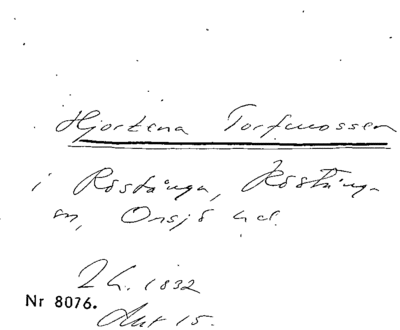 Hjortena Torfmossen
i Röstånga, Röstånga
sn, Onsjö hd.
2 h. 1832
Nr 8076.
Akt 15.